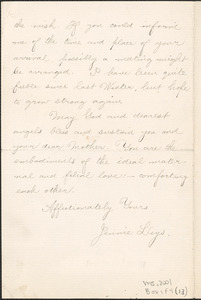 the rush. If you could inform
me of the time and place of your
arrival possibly a meeting might
be arranged. I have been quite
feeble since last Winter, but hope
to grow strong again.
May God and dearest
angels bless and sustain you and
your dear Mother. You are the
embodiments of the ideal mater-
nal and filial love:— comforting
each other.
Affectionately Yours
Jennie Leys.